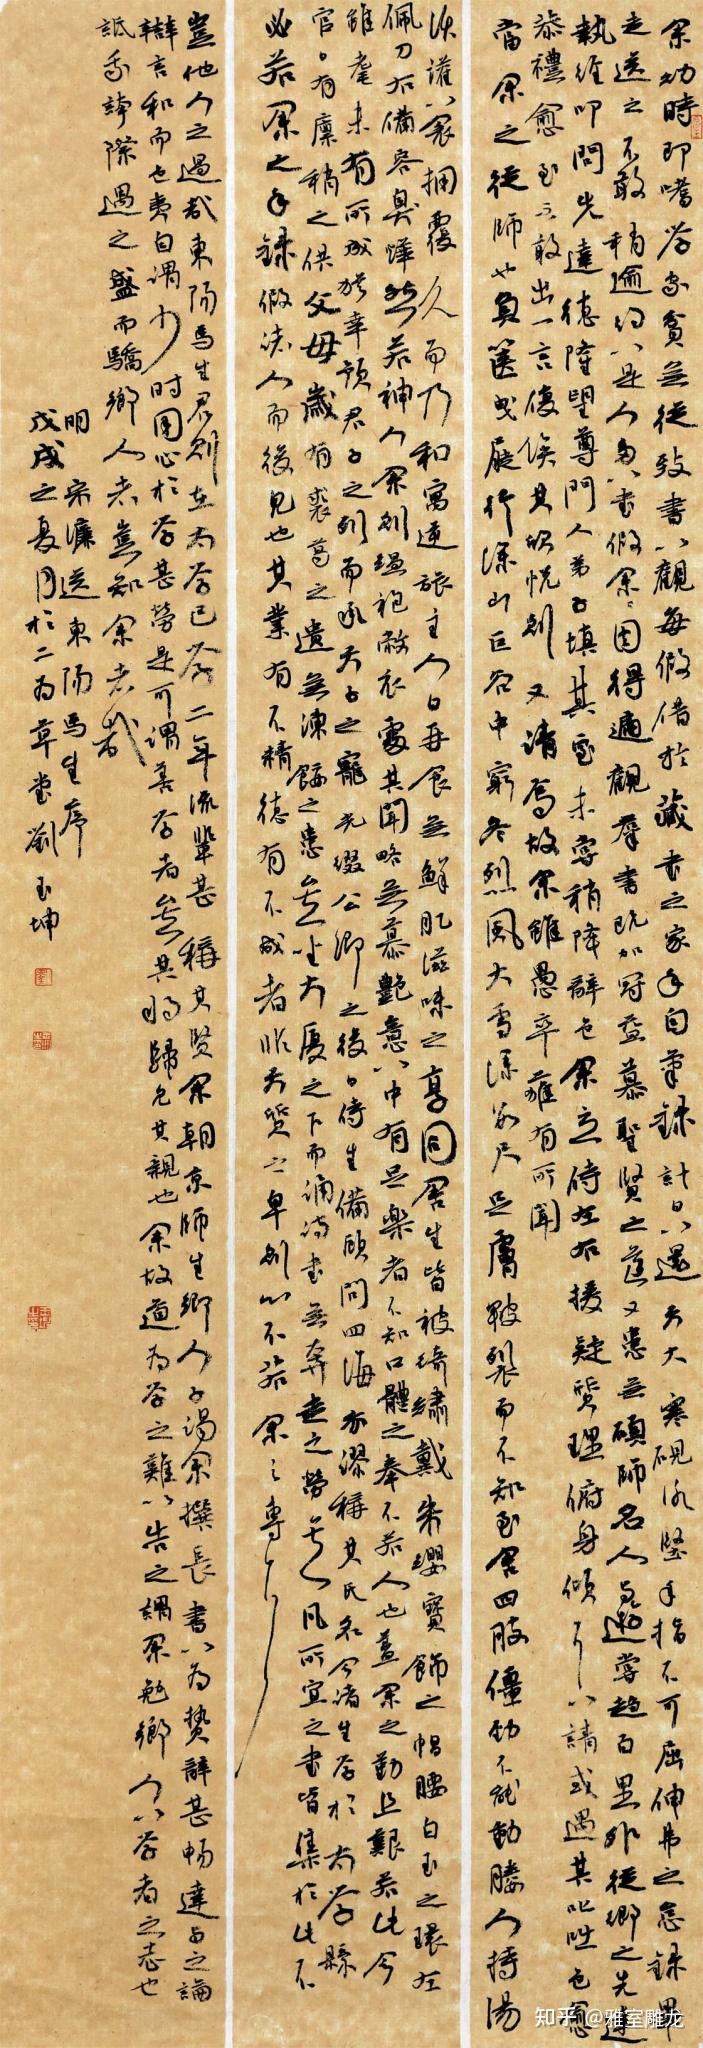 余幼時即嗜學家貧無從致書以觀每假借於藏書之家手自筆錄計日以還天大寒硯冰堅手指不可屈伸弗之怠錄畢
走送之不敢稍逾約以是人多以書假余〻因得遍觀群書既加冠益慕聖賢之道又患無碩師名人與遊嘗趨百里外從鄉之先達
執經叩問先達德隆望尊門人弟子填其室未嘗稍降辭色余立侍左右援疑質理俯身傾耳以請或遇其叱咄色愈
恭禮愈至不敢出一言復俟其欣悅則又請焉故余雖愚卒獲有所聞
當余之從師也負篋曳屣行深山巨谷中窮冬烈風大雪深數尺足膚皸裂而不知至舍四肢僵勁不能動媵人持湯
沃灌以衾擁覆久而乃和寓逆旅主人日再食無鮮肥滋味之享同舍生皆被綺繡戴朱纓寶飾之帽腰白玉之環左
佩刀右備容臭燁然若神人余則縕袍敝衣處其間略無慕艷意以中有足樂者不知口體之奉不若人也蓋余之勤且艱若此今
雖耄未有所成猶幸預君子之列而承天子之寵光綴公卿之後日侍坐備顧問四海亦謬稱其氏名今諸生學於太學縣
官日有廩稍之供父母歲有裘葛之遺無凍餒之患矣坐大廈之下而誦詩書無奔走之勞矣凡所宜之書皆集於此不
必若余之手錄假諸人而後見也其業有不精德有不成者非天質之卑則心不若余之專耳
豈他人之過哉東陽馬生君則在太學已學二年流輩甚稱其賢余朝京師生鄉人子謁余撰長書以為贄辭甚暢達與之論
辯言和而色夷自謂少時用心於學甚勞是可謂善學者矣其將歸見其親也余故道為學之難以告之謂余勉鄉人以學者之志也
詆我誇際遇之盛而驕鄉人者豈知余者哉
明宋濂送東陽馬生序
戊戌之夏月於二為草堂劉玉坤
知乎 @雅室雕龙